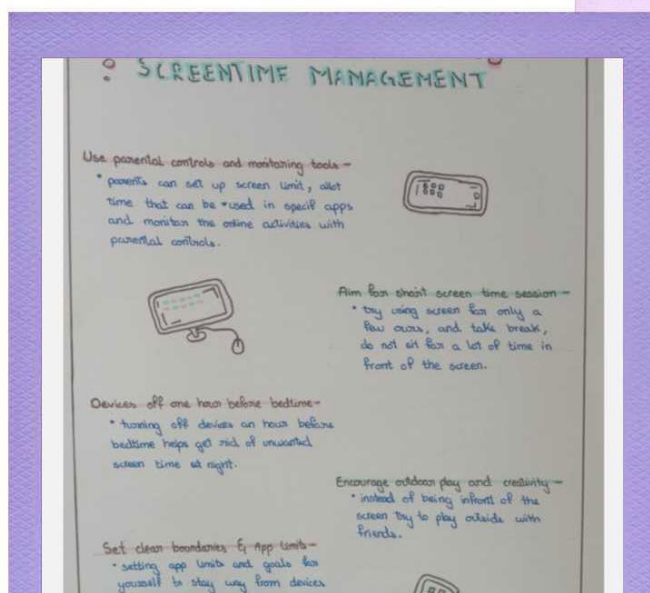 SCREENTIME MANAGEMENT
Use parental controls and monitoring tools -
• parents can set up screen limit, allot
time that can be used in specif apps
and monitor the online activities with
parental controls.
Aim for short screen time session -
• try using screen for only a
few ours, and take break,
do not sit for a lot of time in
front of the screen.
Devices off one hour before bedtime -
• turning off devices an hour before
bedtime helps get rid of unwanted
screen time at night.
Encourage outdoor play and creativity -
• instead of being infront of the
screen try to play outside with
friends.
Set clear boundaries & App limits -
• setting app limits and goals for
yourself to stay way from devices